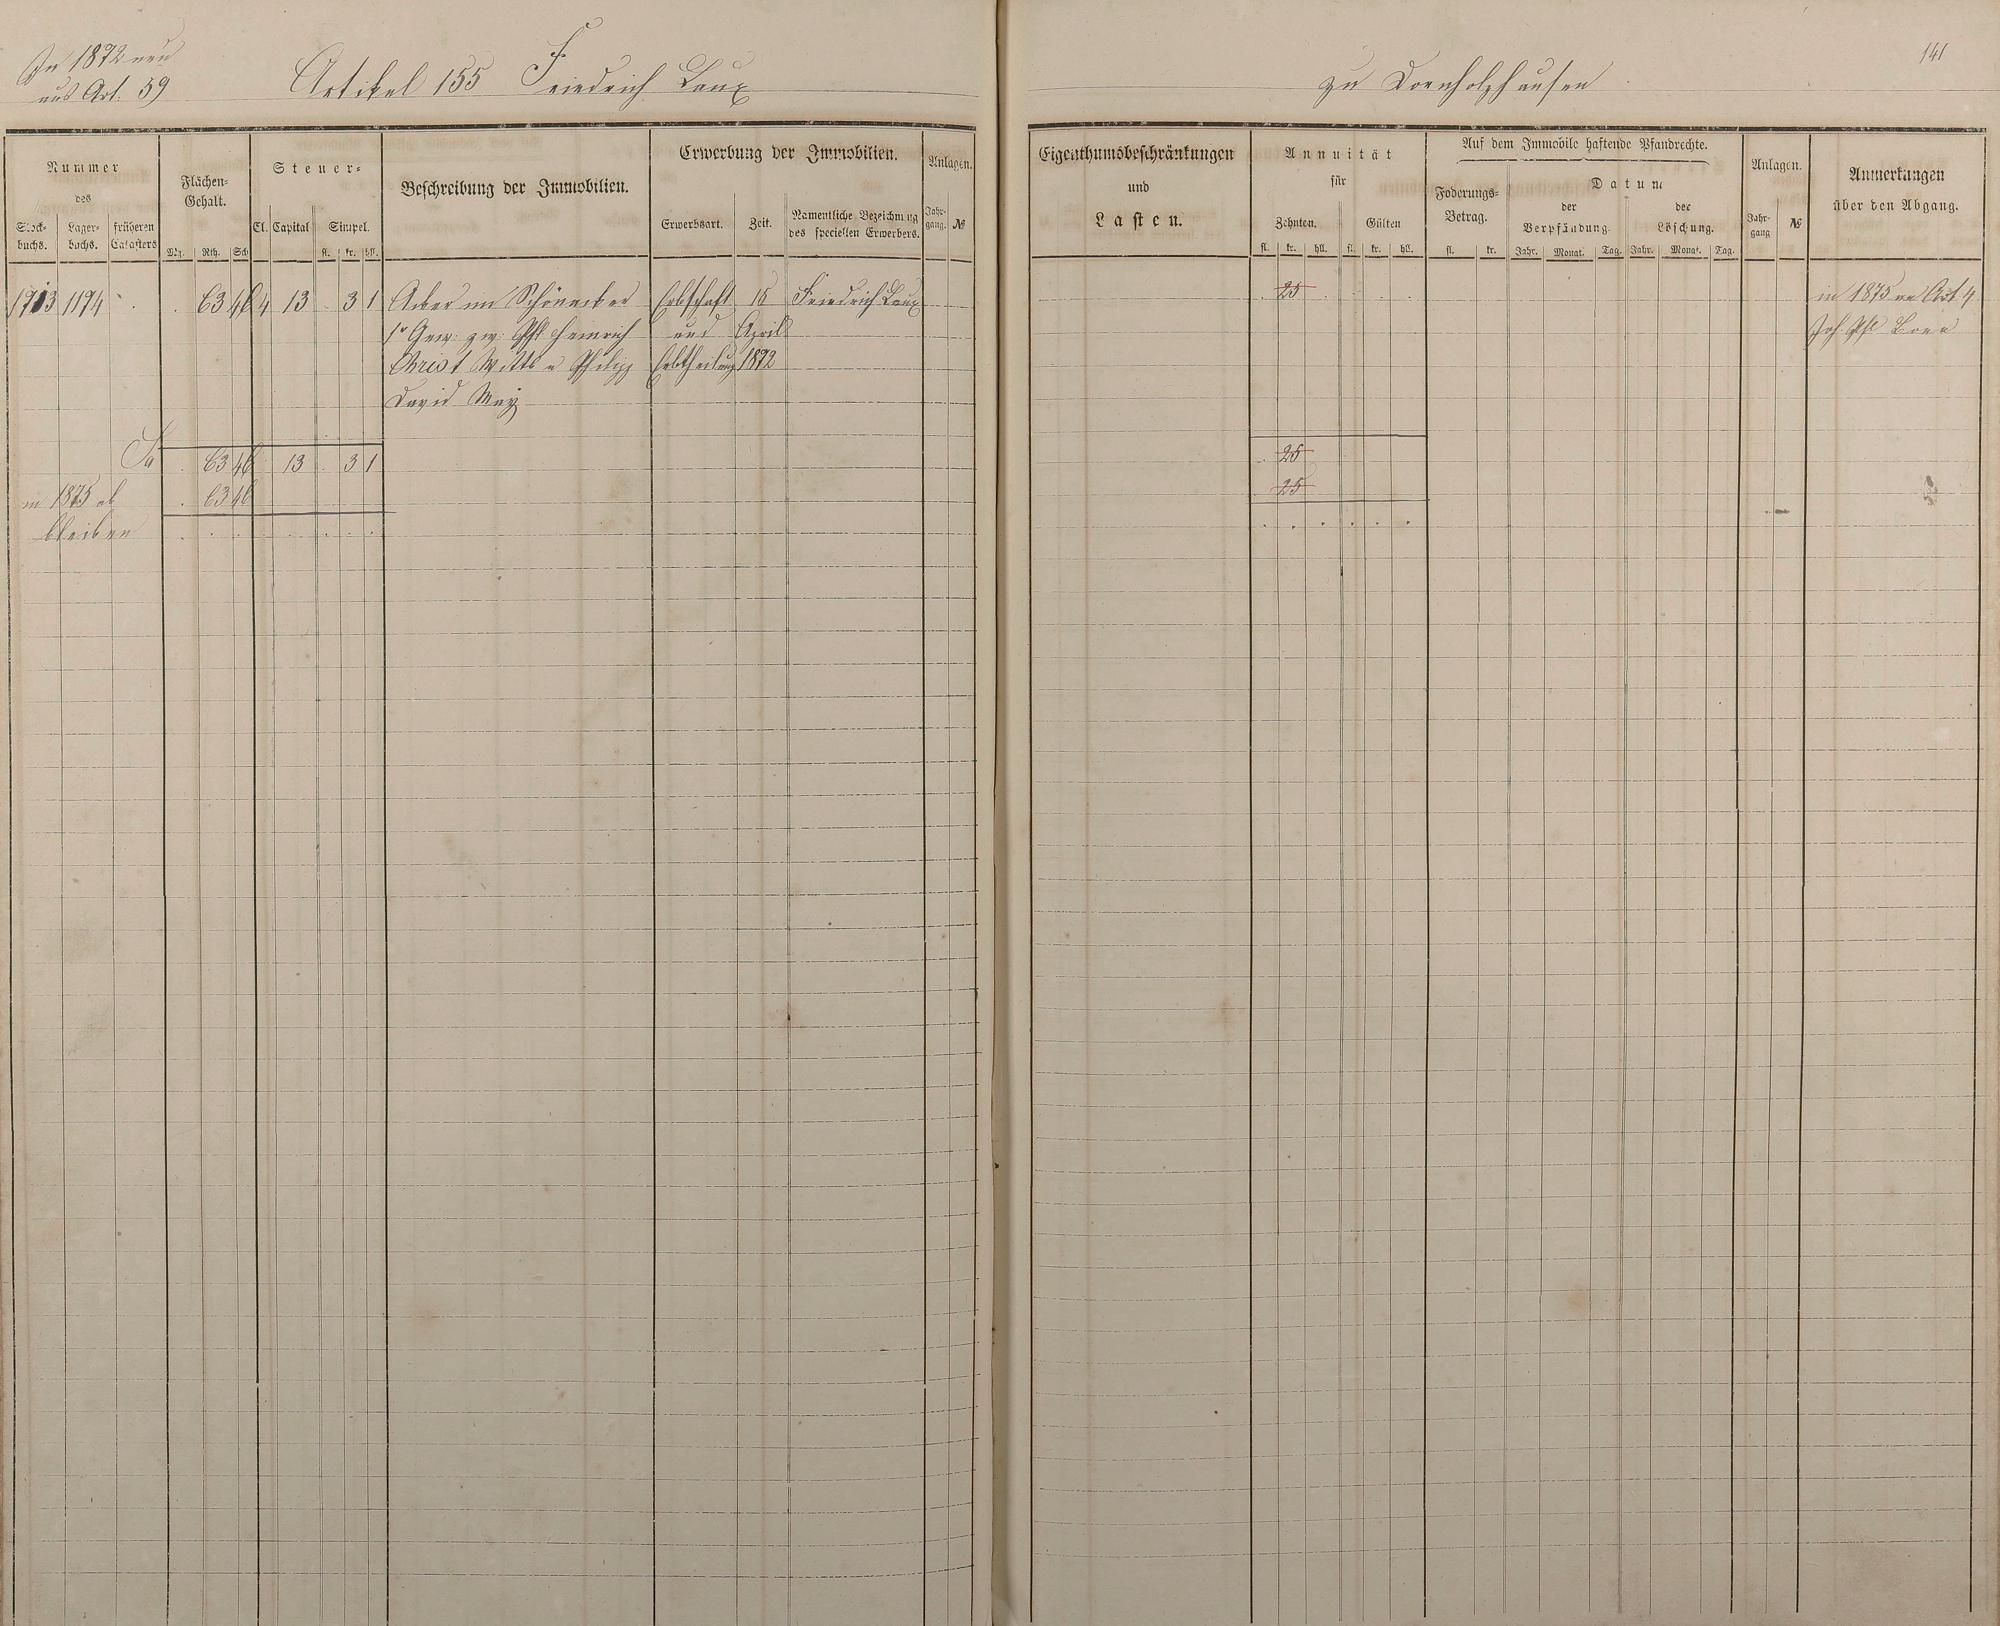 In 1872 neu
aus Art. 59
Artikel 155 Friedrich Laux
zu Dornholzhausen
141
Nummer
des
Stock-
buchs.
Lager-
buchs.
früheren
Catasters
Flächen-
Gehalt.
Mg. Rth. Sch
Steuer-
Cl. Capital Simpel.
fl. kr. hll.
Beschreibung der Immobilien.
Erwerbung der Immobilien.
Erwerbsart. Zeit.
Namentliche Bezeichnung
des speciellen Erwerbers.
Anlagen.
Jahr-
gang. №
Eigenthumsbeschränkungen
und
Lasten.
Annuität
für
Zehnten. Gülten
fl. kr. hll. fl. kr. hll.
Auf dem Immobile haftende Pfandrechte.
Foderungs-
Betrag.
fl. kr.
Datum
der
Verpfändung.
Jahr. Monat. Tag.
der
Löschung.
Jahr. Monat. Tag.
Anlagen.
Jahr-
gang №
Anmerkungen
über den Abgang.
1913 1194 . . 63 46 4 13 . 3 1 Acker im Schönacker Erbschaft 15 Friedrich Laux
1r Gew: zw: Phl Heinrich und April
Christ Witte u Philipp Erbtheilung 1872
David May
. 25 . . . .
in 1875 an Art 4
Joh. Phl
Sa . 63 46 13 . 3 1
. 25
in 1875 ab . 63 46
. 25
bleiben . . . . . . .
. . . . . .